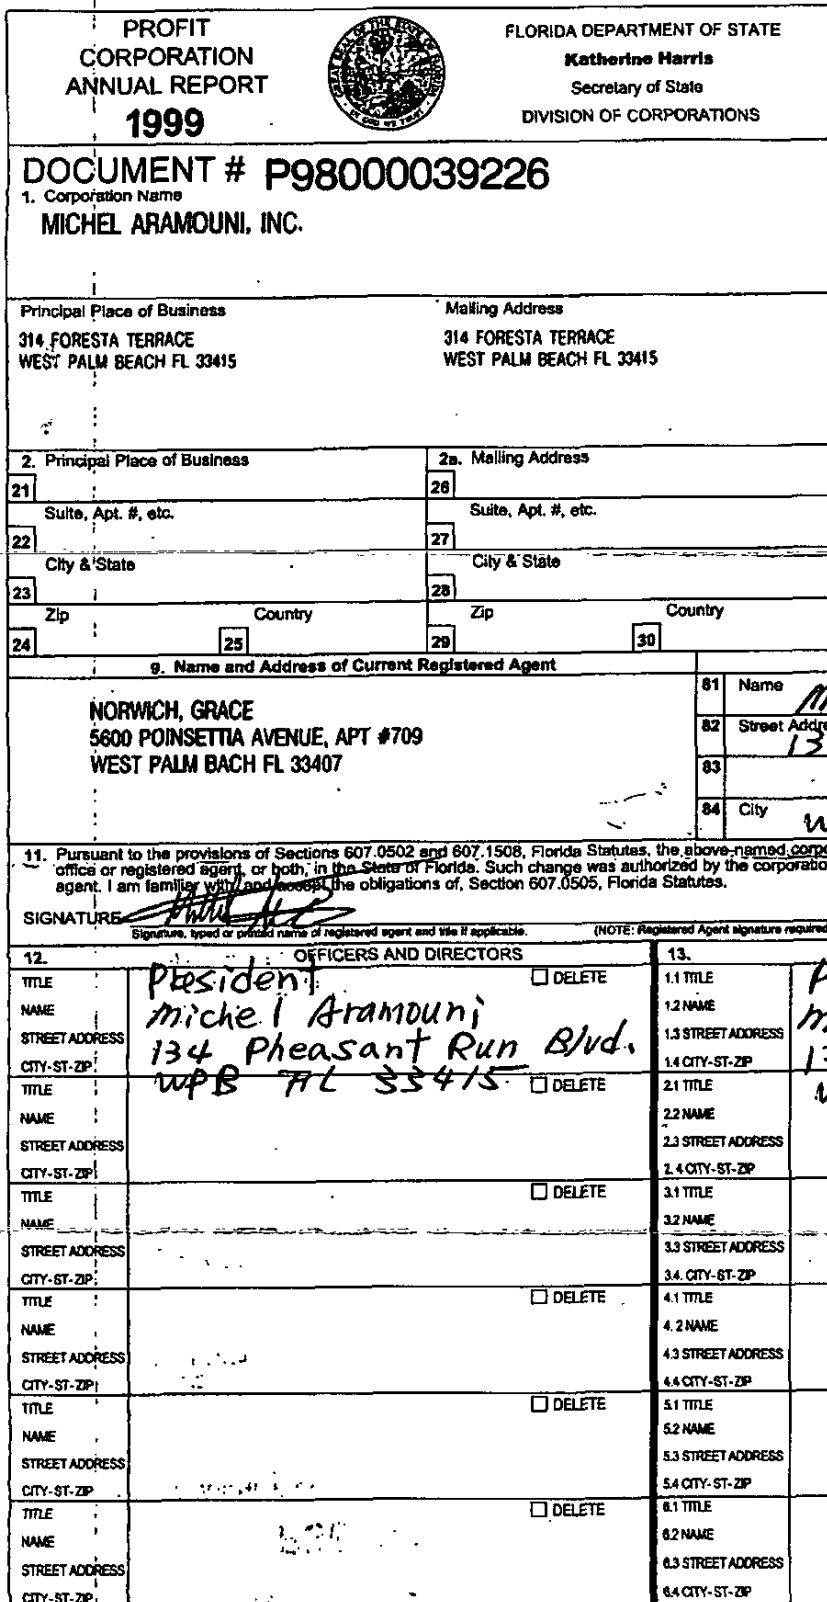 PROFIT
CORPORATION
ANNUAL REPORT
1999
FLORIDA DEPARTMENT OF STATE
Katherine Harris
Secretary of State
DIVISION OF CORPORATIONS
DOCUMENT # P98000039226
1. Corporation Name
MICHEL ARAMOUNI, INC.
Principal Place of Business
314 FORESTA TERRACE
WEST PALM BEACH FL 33415
Mailing Address
314 FORESTA TERRACE
WEST PALM BEACH FL 33415
2. Principal Place of Business
21
Suite, Apt. #, etc.
22
City & State
23
Zip
24
Country
25
2a. Mailing Address
26
Suite, Apt. #, etc.
27
City & State
28
Zip
29
Country
30
9. Name and Address of Current Registered Agent
NORWICH, GRACE
5600 POINSETTIA AVENUE, APT #709
WEST PALM BACH FL 33407
81 Name
82 Street Addre
13
83
84 City
11. Pursuant to the provisions of Sections 607.0502 and 607.1508, Florida Statutes, the above-named corpo
office or registered agent, or both, in the State of Florida. Such change was authorized by the corporatio
agent. I am familiar with, and accept the obligations of, Section 607.0505, Florida Statutes.
SIGNATURE
Signature, typed or printed name of registered agent and title if applicable.
(NOTE: Registered Agent signature required
12. OFFICERS AND DIRECTORS
13.
TITLE President DELETE
NAME Michel Aramouni
STREET ADDRESS 134 Pheasant Run Blvd.
CITY-ST-ZIP WPB FL 33415
1.1 TITLE
1.2 NAME
1.3 STREET ADDRESS
1.4 CITY-ST-ZIP
TITLE DELETE
NAME
STREET ADDRESS
CITY-ST-ZIP
2.1 TITLE
2.2 NAME
2.3 STREET ADDRESS
2.4 CITY-ST-ZIP
TITLE DELETE
NAME
STREET ADDRESS
CITY-ST-ZIP
3.1 TITLE
3.2 NAME
3.3 STREET ADDRESS
3.4. CITY-ST-ZIP
TITLE DELETE
NAME
STREET ADDRESS
CITY-ST-ZIP
4.1 TITLE
4.2 NAME
4.3 STREET ADDRESS
4.4 CITY-ST-ZIP
TITLE DELETE
NAME
STREET ADDRESS
CITY-ST-ZIP
5.1 TITLE
5.2 NAME
5.3 STREET ADDRESS
5.4 CITY-ST-ZIP
TITLE DELETE
NAME
STREET ADDRESS
CITY-ST-ZIP
6.1 TITLE
6.2 NAME
6.3 STREET ADDRESS
6.4 CITY-ST-ZIP